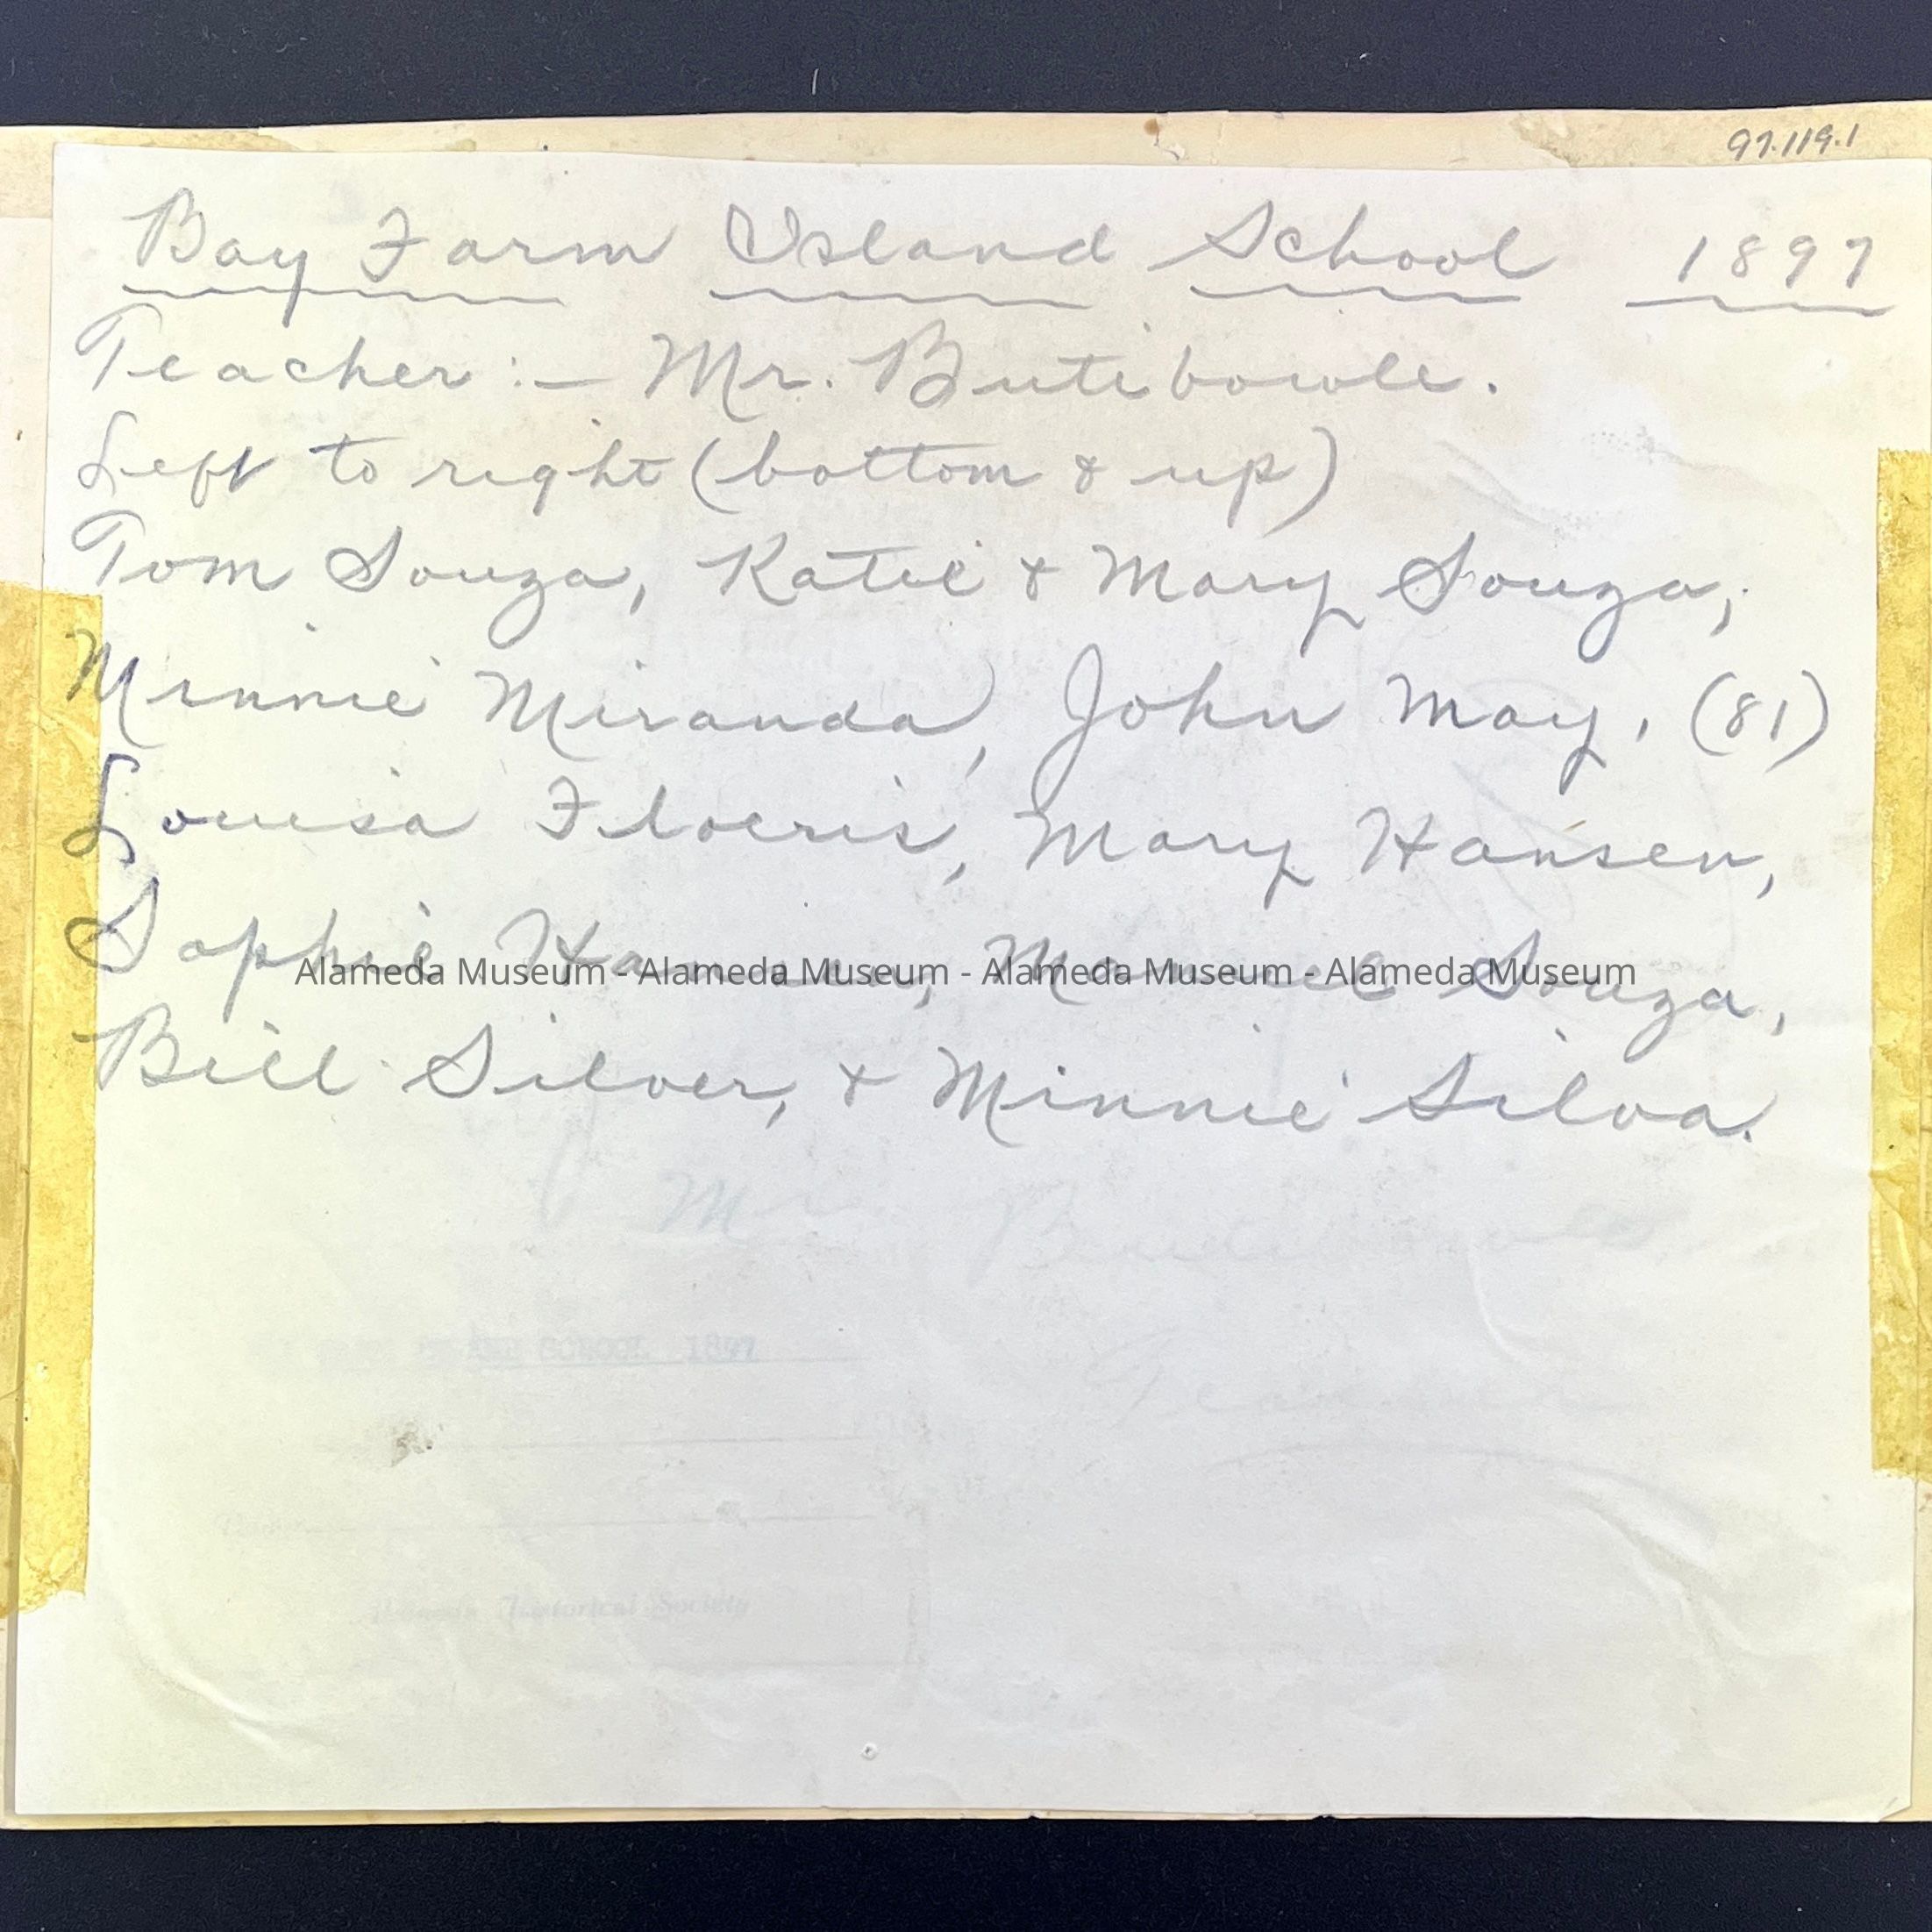 97.119.1
Bay Farm Island School 1897
Teacher :— Mr. Butibowle.
Left to right (bottom & up)
Tom Souza, Katie & Mary Souza,
Minnie Miranda, John May, (81)
Louisa Floeris, Mary Hansen,
Sophie Hansen, Manuel Souza,
Alameda Museum - Alameda Museum - Alameda Museum - Alameda Museum
Bill Silver, & Minnie Silva.
Mr.
SCHOOL 1897
Historical Society